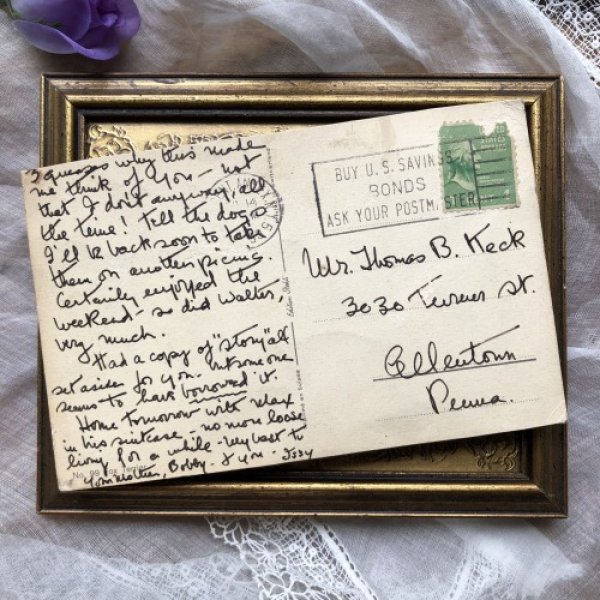 I guess why this made
me think of you - not
that I don't anyway, all
the time! Tell the dogs
I'll be back soon to take
them on another picnic.
Certainly enjoyed the
weekend - so did Walter,
very much.
Had a copy of "story" all
set aside for you. but someone
seems to have borrowed it.
Home tomorrow with Max
in his suitcase - no more loose
living for a while - my best to
your mother, Bobby - & you - Issy
No. 99
BUY U.S. SAVINGS
BONDS
ASK YOUR POSTMASTER
Mr. Thomas B. Keck
3030 Turner St.
Allentown
Penna.